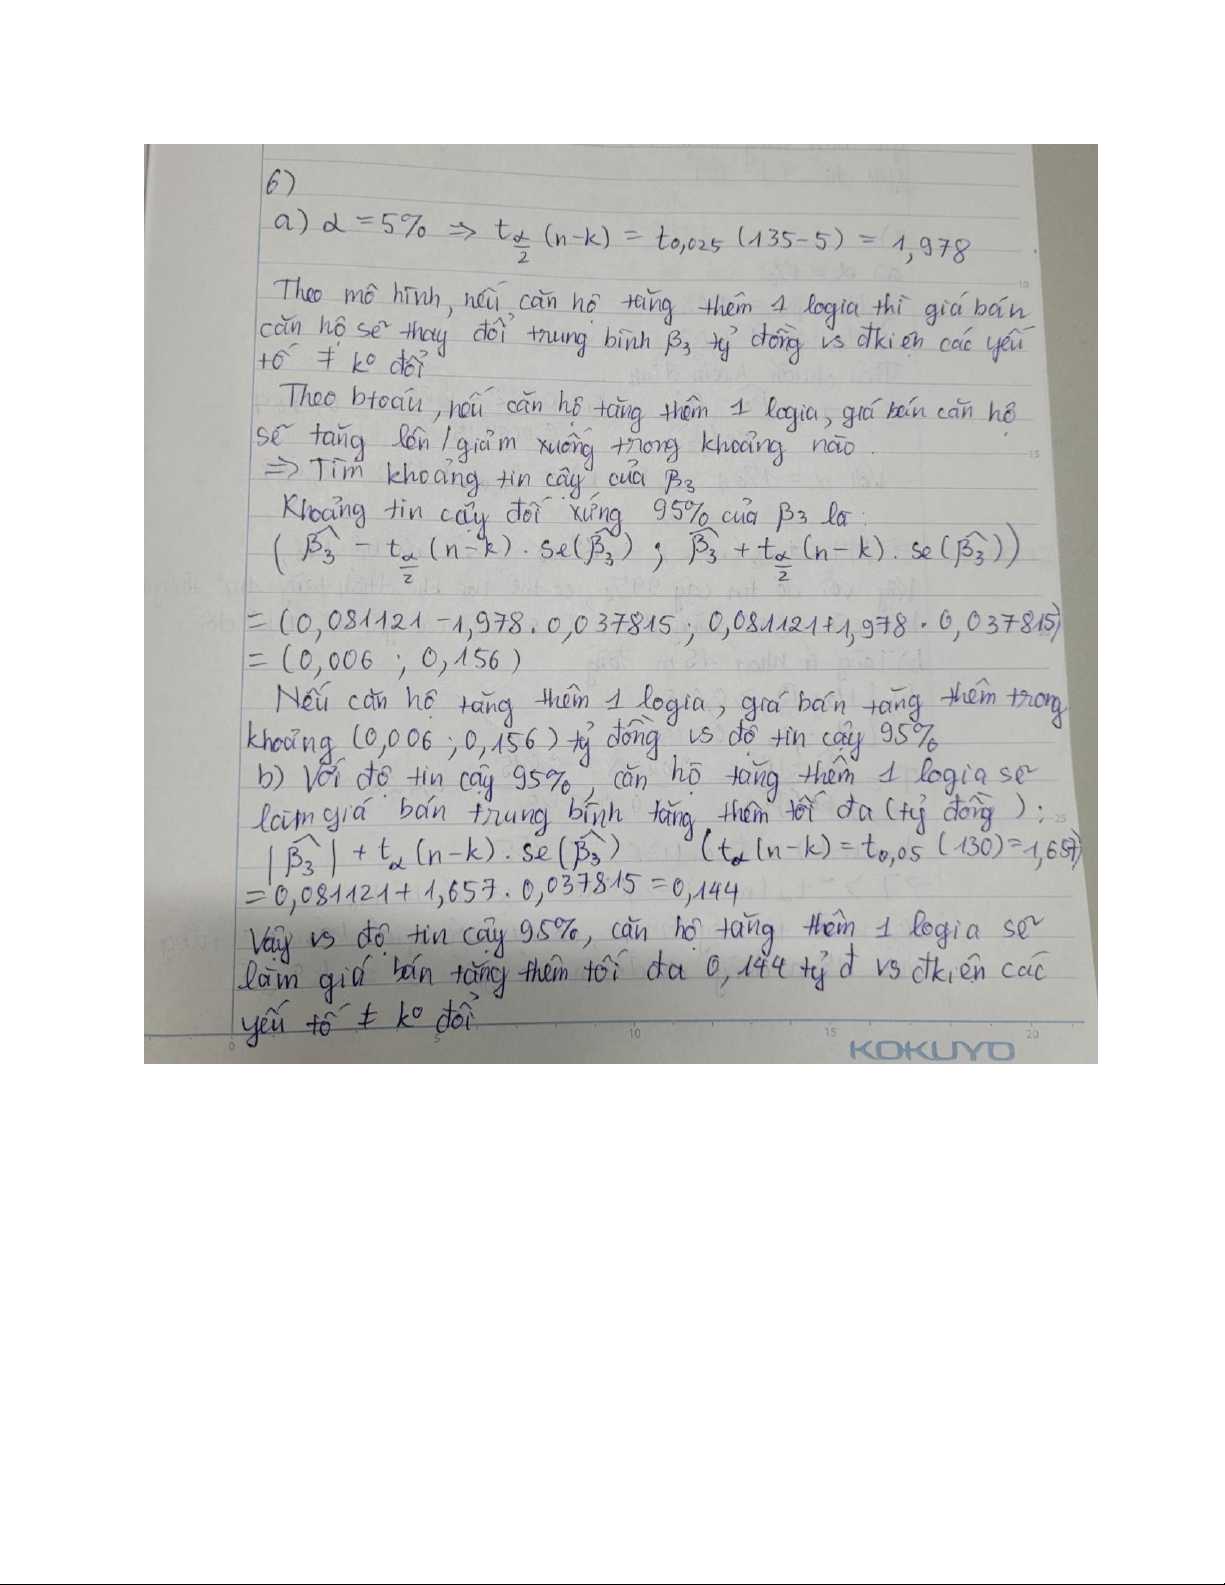 6)
a) α = 5% => t α/2 (n-k) = t0,025 (135-5) = 1,978
Theo mô hình, nếu căn hộ tăng thêm 1 logia thì giá bán
căn hộ sẽ thay đổi trung bình β3 tỷ đồng vs đkiện các yếu
tố ≠ ko đổi
Theo btoán, nếu căn hộ tăng thêm 1 logia, giá bán căn hộ
sẽ tăng lên / giảm xuống trong khoảng nào.
=> Tìm khoảng tin cậy của β3
Khoảng tin cậy đối xứng 95% của β3 là:
( β̂3 - t α/2 (n-k) . se(β̂3) ; β̂3 + t α/2 (n-k) . se(β̂3))
= (0,081121 - 1,978 . 0,037815 ; 0,081121 + 1,978 . 0,037815)
= (0,006 ; 0,156)
Nếu căn hộ tăng thêm 1 logia, giá bán tăng thêm trong
khoảng (0,006 ; 0,156) tỷ đồng vs độ tin cậy 95%
b) Với độ tin cậy 95%, căn hộ tăng thêm 1 logia sẽ
làm giá bán trung bình tăng thêm tối đa (tỷ đồng):
|β̂3| + tα (n-k) . se(β̂3) (tα (n-k) = t0,05 (130) = 1,657)
= 0,081121 + 1,657 . 0,037815 = 0,144
Vậy vs độ tin cậy 95%, căn hộ tăng thêm 1 logia sẽ
làm giá bán tăng thêm tối đa 0,144 tỷ đ vs đkiện các
yếu tố ≠ ko đổi
0 5 10 15 20
KOKUYO